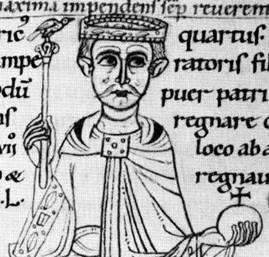 axima impendens sep reverem
ric⁹ quartus·
mpe ratoris fil
dū puer patri
ns regnare c
loco ab a
& regnau
L.